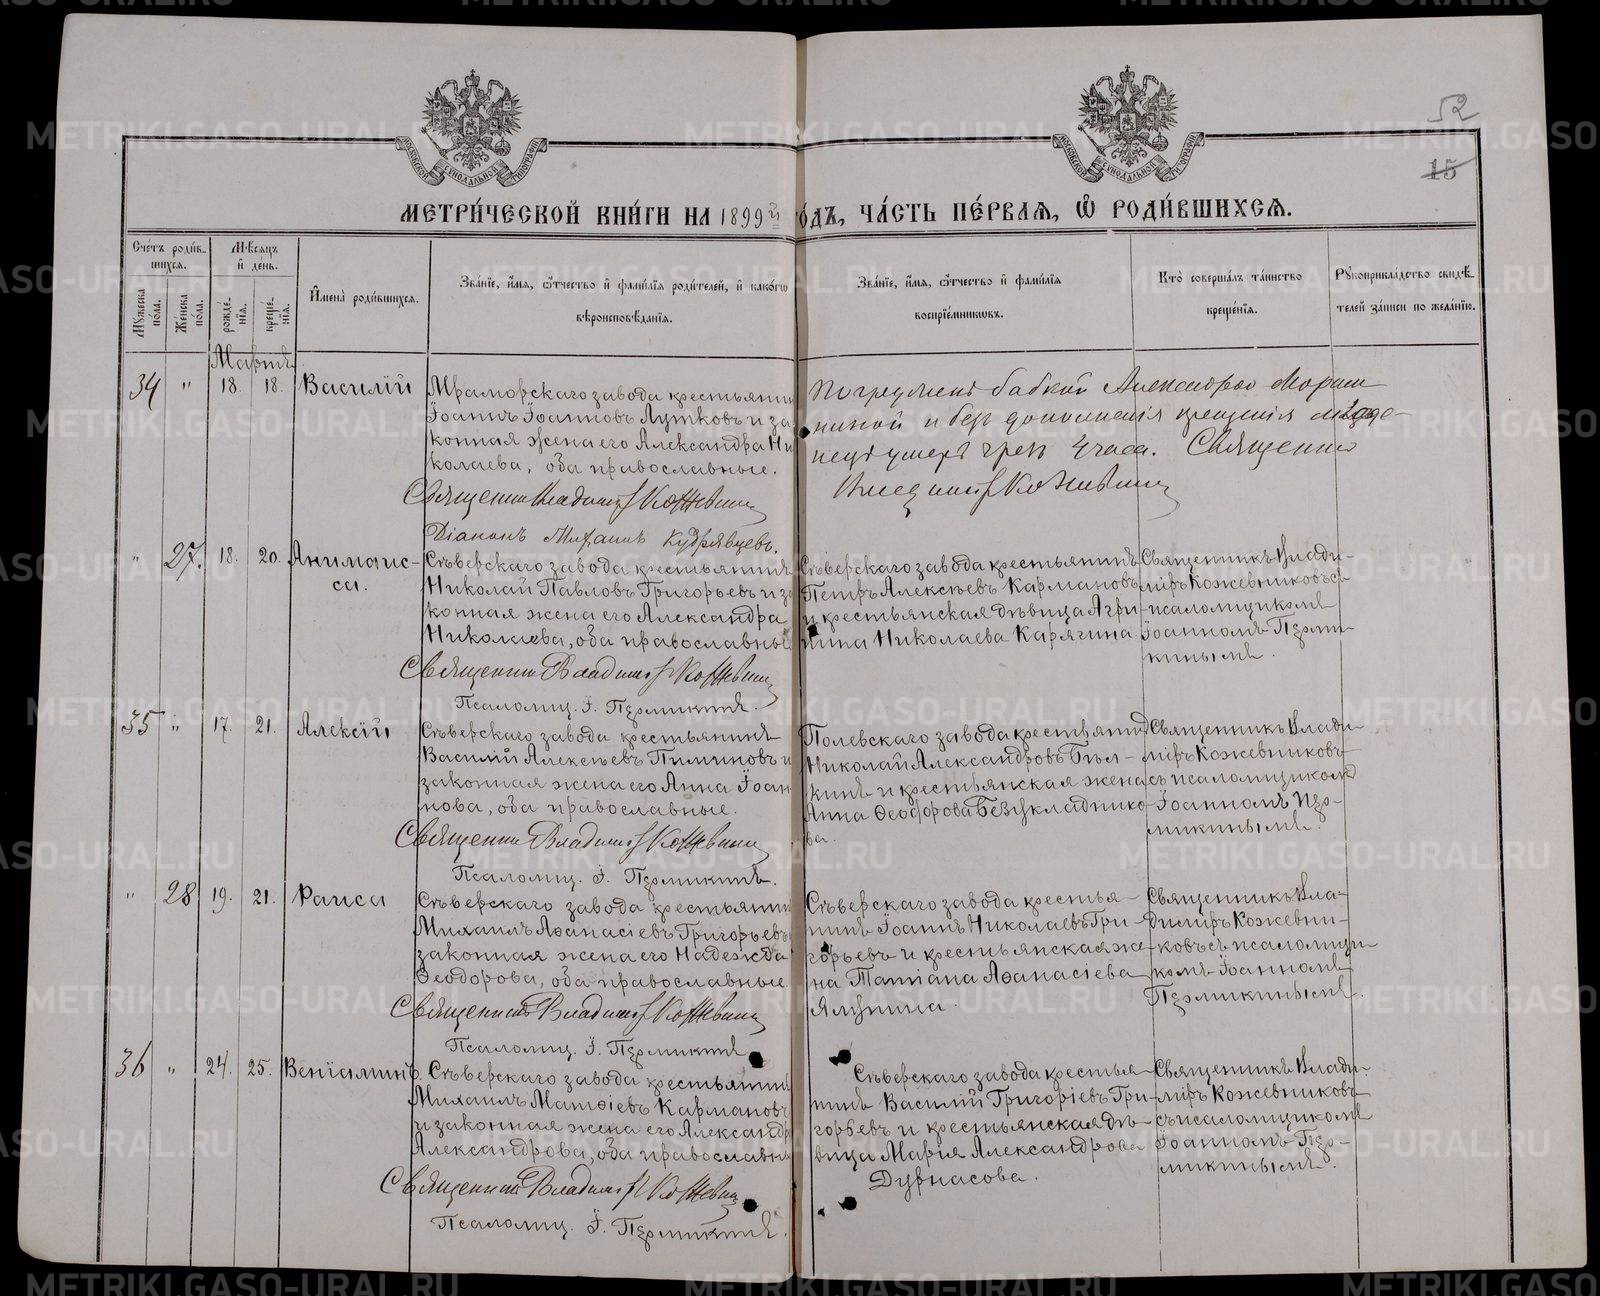 52
15
МЕТРИ́ЧЕСКОЙ КНИ́ГИ НА 1899й ГО́ДЪ, ЧА́СТЬ ПЕ́РВАЯ, Ѡ҆ РОДИ́ВШИХСЯ.
Сче́тъ роди́в-
шихся.
Мѣ́сяцъ
и҆ де́нь.
Мꙋ́жеска по́ла.
Же́нска по́ла.
рожде́-
нїя.
креще́-
нїя.
И҆мена̀ роди́вшихся.
Зва́нїе, и҆́мя, ѻ҆́тчество и҆ фамѝлїя роди́телей, и҆ како́гѡ
вѣроисповѣ́данїя.
Зва́нїе, и҆́мя, ѻ҆́тчество и҆ фамѝлїя
воспрїе́мникѡвъ.
Кто̀ соверша́лъ та́инство
креще́нїя.
Рꙋкоприкла́дство свидѣ́-
телей за́писи по жела́нїю.
Мартъ
34 " 18. 18. Василій
Мраморскаго завода крестьянинъ
Іоаннъ Іоанновъ Лутковъ и за
конная жена его Александра Ни
колаева, оба православные.
Священникъ Владиміръ Кожевник
Діаконъ Михаилъ Кудрявцевъ.
бабкой
и безъ дополненія крещенія
умеръ чрезъ 4 часа. Священник
Владиміръ Кожевник
" 27. 18. 20. Анимаис-
са.
Сѣверскаго завода крестьянинъ
Николай Павловъ Григорьевъ и за
конная жена его Александра
Николаева, оба православные
Священникъ Владиміръ Кожевник
Псаломщ. І. Пермикинъ.
Сѣверскаго завода крестьянинъ
Петръ Алексѣевъ Кармановъ
и крестьянская дѣвица Агри-
пина Николаева Карягина
Священникъ Влади-
міръ Кожевниковъ съ
псаломщикомъ
Іоанномъ Перми-
кинымъ.
35 " 17. 21. Алексій
Сѣверскаго завода крестьянинъ
Василій Алексѣевъ Пиминовъ и
законная жена его Анна Іоан
нова, оба православные.
Священникъ Владиміръ Кожевник
Псаломщ. І. Пермикинъ.
Полевскаго завода крестьянинъ
Николай Александровъ Бѣл-
кинъ и крестьянская жена
Анна Ѳеодорова Безукладнико
ва.
Священникъ Влади-
міръ Кожевниковъ
съ псаломщикомъ
Іоанномъ Пер-
микинымъ.
" 28 19. 21. Раиса
Сѣверскаго завода крестьянин
Михаилъ Аѳанасіевъ Григорьевъ
законная жена его Надежда
Ѳеодорова, оба православные.
Священникъ Владиміръ Кожевник
Псаломщ. І. Пермикинъ
Сѣверскаго завода крестья-
нинъ Іоаннъ Николаевъ Гри-
горьевъ и крестьянская же-
на Татіана Аѳанасіева
Ялунина.
Священникъ Вла-
диміръ Кожевни-
ковъ съ псаломщи
комъ Іоанномъ
Пермикинымъ.
36 " 24. 25. Веніаминъ.
Сѣверскаго завода крестьянинъ
Михаилъ Матѳіевъ Кармановъ
и законная жена его Александр
Александрова, оба православны
Священникъ Владиміръ Кожевник
Псаломщ. І. Пермикинъ.
Сѣверскаго завода крестья-
нинъ Василій Григоріевъ Гри-
горьевъ и крестьянская дѣ-
вица Марія Александрова
Дурнасова.
Священникъ Влади-
міръ Кожевниковъ
съ псаломщикомъ
Іоанномъ Пер-
микинымъ.
METRIKI.GASO-URAL.RU